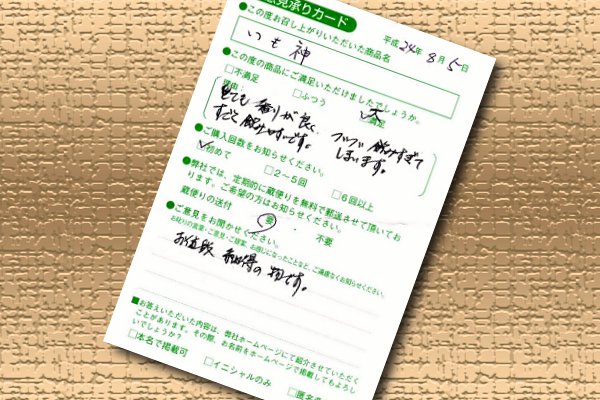 意見承りカード
平成24年8月5日
●この度お召し上がりいただいた商品名
いも神
●この度の商品にご満足いただけましたでしょうか。
□不満足 □ふつう □満足
大
理由:
とても香りが良く、ツイツイ飲みすぎて
すごく飲みやすいです。しまいます。
●ご購入回数をお知らせください。
□初めて □2～5回 □6回以上
●弊社では、定期的に蔵便りを無料で郵送させて頂いてお
ります。ご希望の方はお知らせください。
蔵便りの送付 要 ・ 不要
●ご意見をお聞かせください。
お叱りの言葉・ご意見・ご提案、お感じになったことなど、ご遠慮なくお知らせください。
お値段 納得の物です。
■お答えいただいた内容は、弊社ホームページにて紹介させていただく
ことがあります。その際、お名前をホームページで掲載してもよろし
いでしょうか?
□本名で掲載可 □イニシャルのみ □匿名